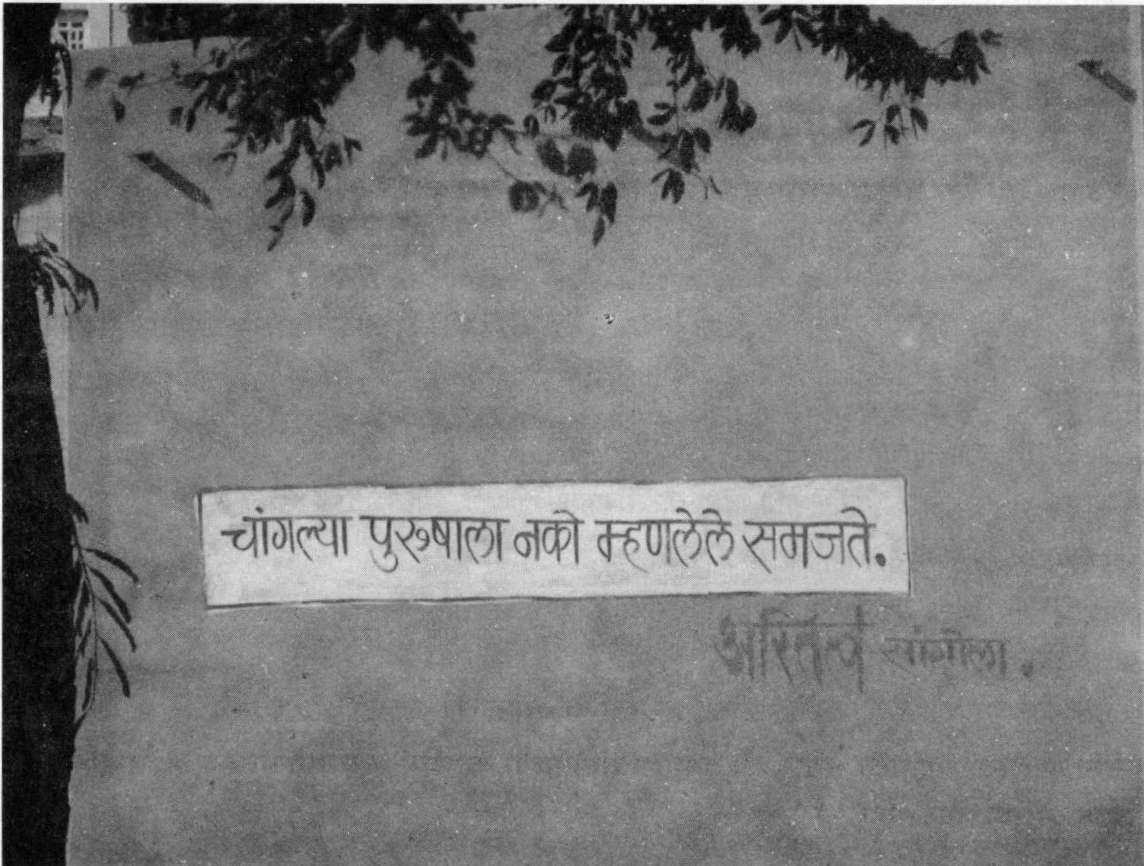 चांगल्या पुरुषाला नको म्हणलेले समजते.
अस्तित्व सांगोला.